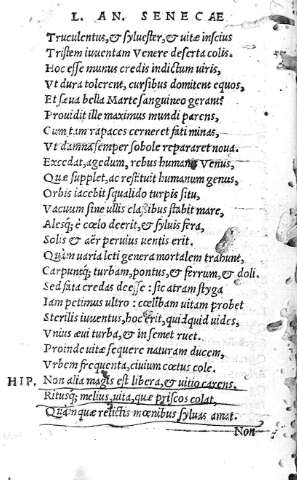 L. AN. SENECAE
Truculentus, & syluester, & uitæ inscius
Tristem iuuentam Venere deserta colis.
Hoc esse munus credis indictum uiris,
Vt dura tolerent, cursibus domitent equos,
Et sæua bella Marte sanguineo gerant?
Prouidit ille maximus mundi parens,
Cum tam rapaces cerneret fati minas,
Vt damna semper sobole repararet noua.
Excedat, agedum, rebus humanis Venus,
Quæ supplet, ac restituit humanum genus,
Orbis iacebit squalido turpis situ,
Vacuum sine ullis classibus stabit mare,
Alesq; è cœlo deerit, & syluis fera,
Solis & aër peruius uentis erit.
Quàm uaria leti genera mortalem trahunt,
Carpuntq; turbam, pontus, & ferrum, & doli.
Sed fata credas deesse: sic atram styga
Iam petimus ultro: cœlibem uitam probet
Sterilis iuuentus, hoc erit, quidquid uides,
Vnius æui turba, & in semet ruet.
Proinde uitæ sequere naturam ducem,
Vrbem frequenta, ciuium cœtus cole.
HIP. Non alia magis est libera, & uitio carens,
Ritusq; melius uita, quæ priscos colat,
Quàm quæ relictis mœnibus syluas amat.
Non